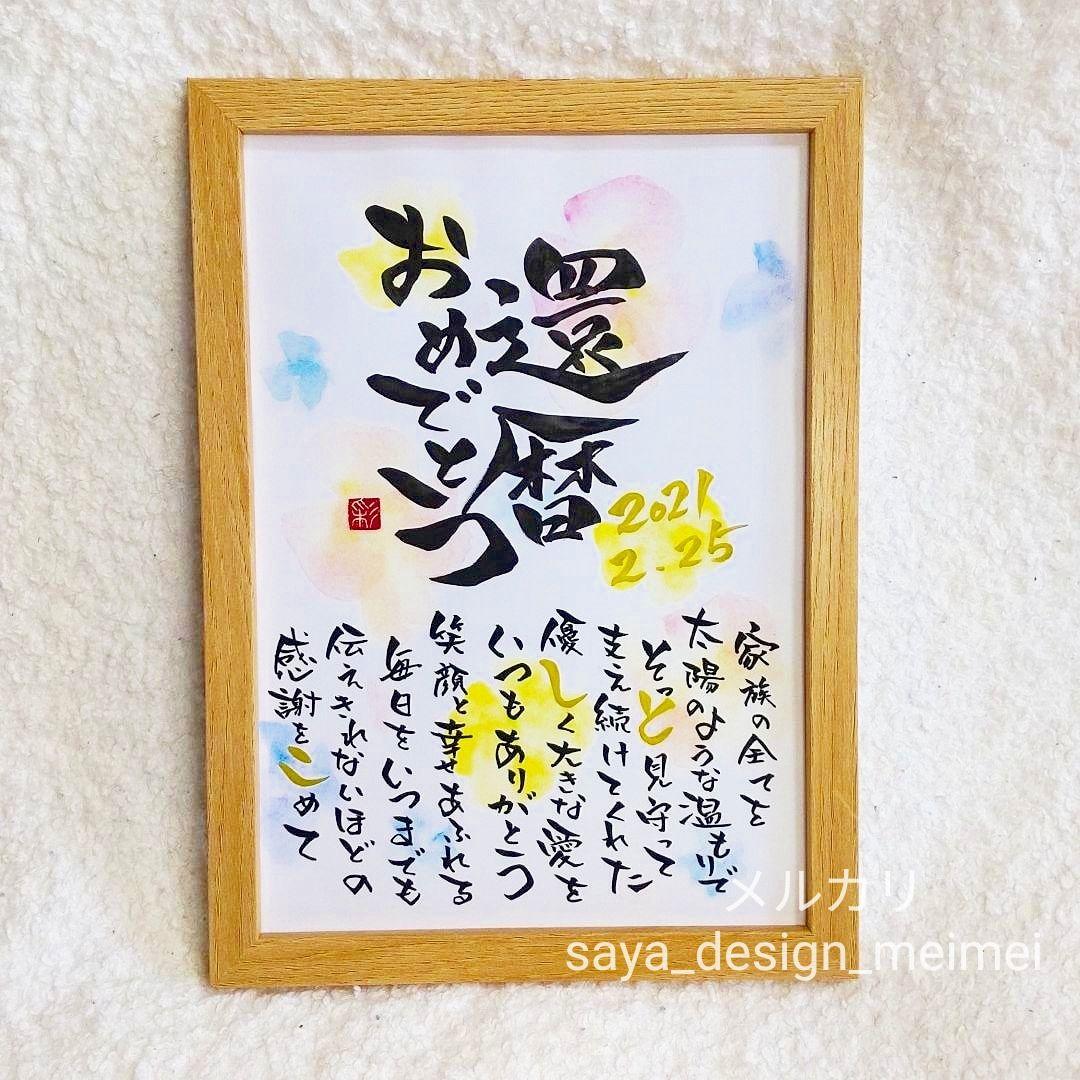 還暦
おめでとう
2021
2.25
彩
家族の全てを
太陽のような温もりで
そっと見守って
支え続けてくれた
優しく大きな愛を
いつもありがとう
笑顔と幸せあふれる
毎日をいつまでも
伝えきれないほどの
感謝をこめて
メルカリ
saya_design_meimei